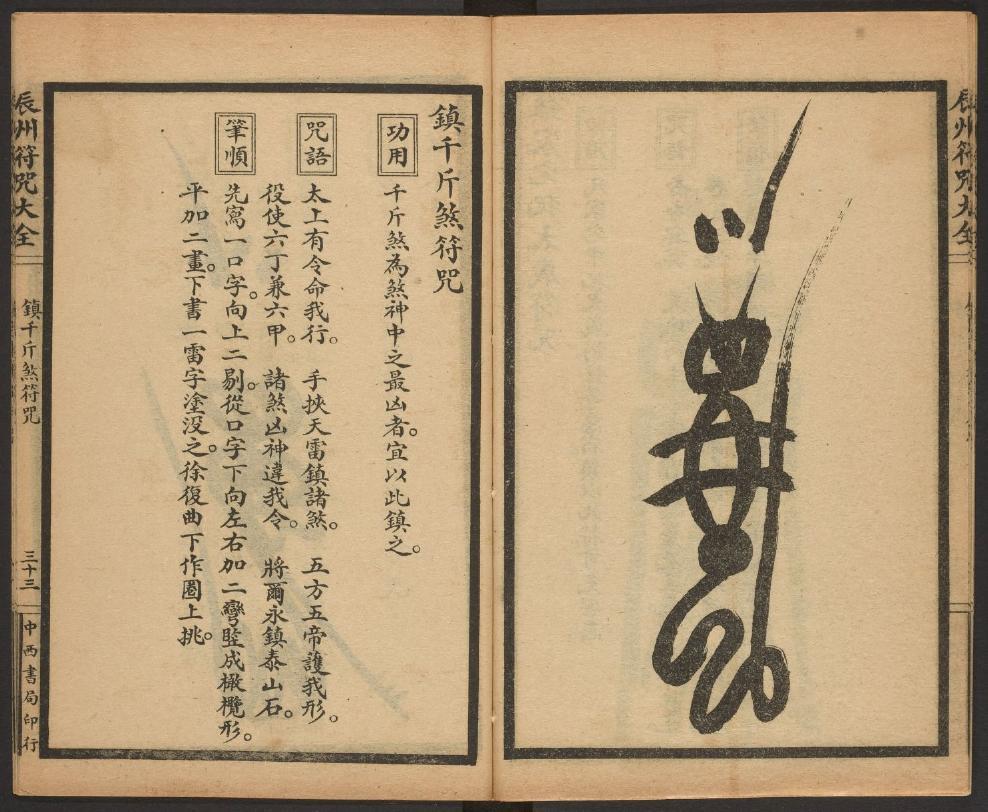 辰州符咒大全
鎮千斤煞符咒
功用
千斤煞為煞神中之最凶者。宜以此鎮之。
咒語
太上有令命我行。 手挾天雷鎮諸煞。 五方五帝護我形。
役使六丁兼六甲。 諸煞凶神違我令。 將爾永鎮泰山石。
筆順
先寫一口字。向上二剔。從口字下向左右加二彎豎成橄欖形。
平加二畫。下書一雷字塗沒之。徐復曲下作圈上挑。
辰州符咒大全
鎮千斤煞符咒
三十三
中西書局印行